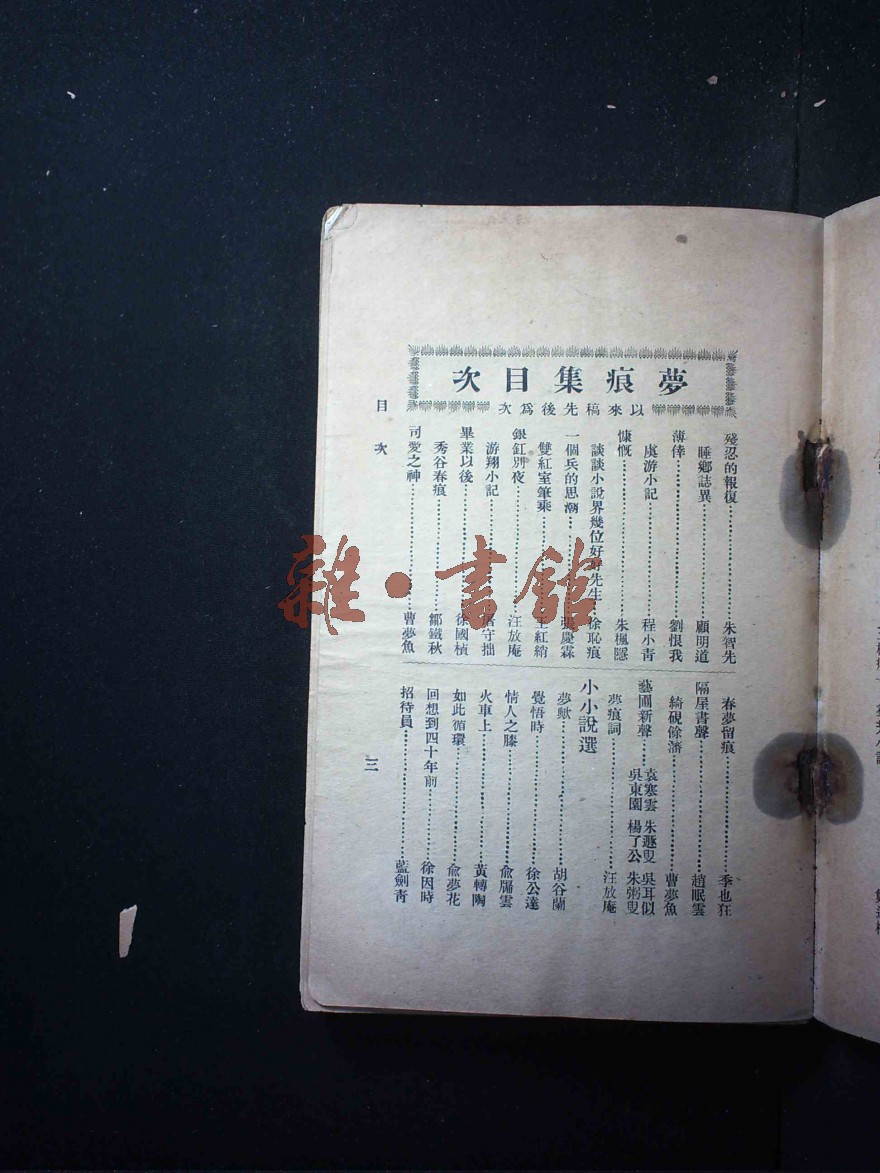 夢痕集目次
以來稿先後爲次
殘忍的報復……朱智先
睡鄉誌異……顧明道
薄倖……劉恨我
虞游小記……程小青
慷慨……朱楓隱
談談小說界幾位好好先生……徐恥痕
一個兵的思潮……張慶霖
雙紅室筆乘……王紅綃
銀釭別夜……汪放庵
游翔小記……守拙
畢業以後……徐國楨
秀谷春痕……鄒鐵秋
司愛之神……曹夢魚
春夢留痕……季也狂
隔屋書聲……趙眠雲
綺硯餘瀋……曹夢魚
藝圃新聲……袁寒雲 朱遯叟 吳耳似
吳東園 楊了公 朱粥叟
夢痕詞……汪放庵
小小說選
夢歟……胡谷蘭
覺悟時……徐公達
情人之膝……俞牖雲
火車上……黃轉陶
如此循環……俞夢花
回想到四十年前……徐因時
招待員……藍劍青
目次
三
雜·書館